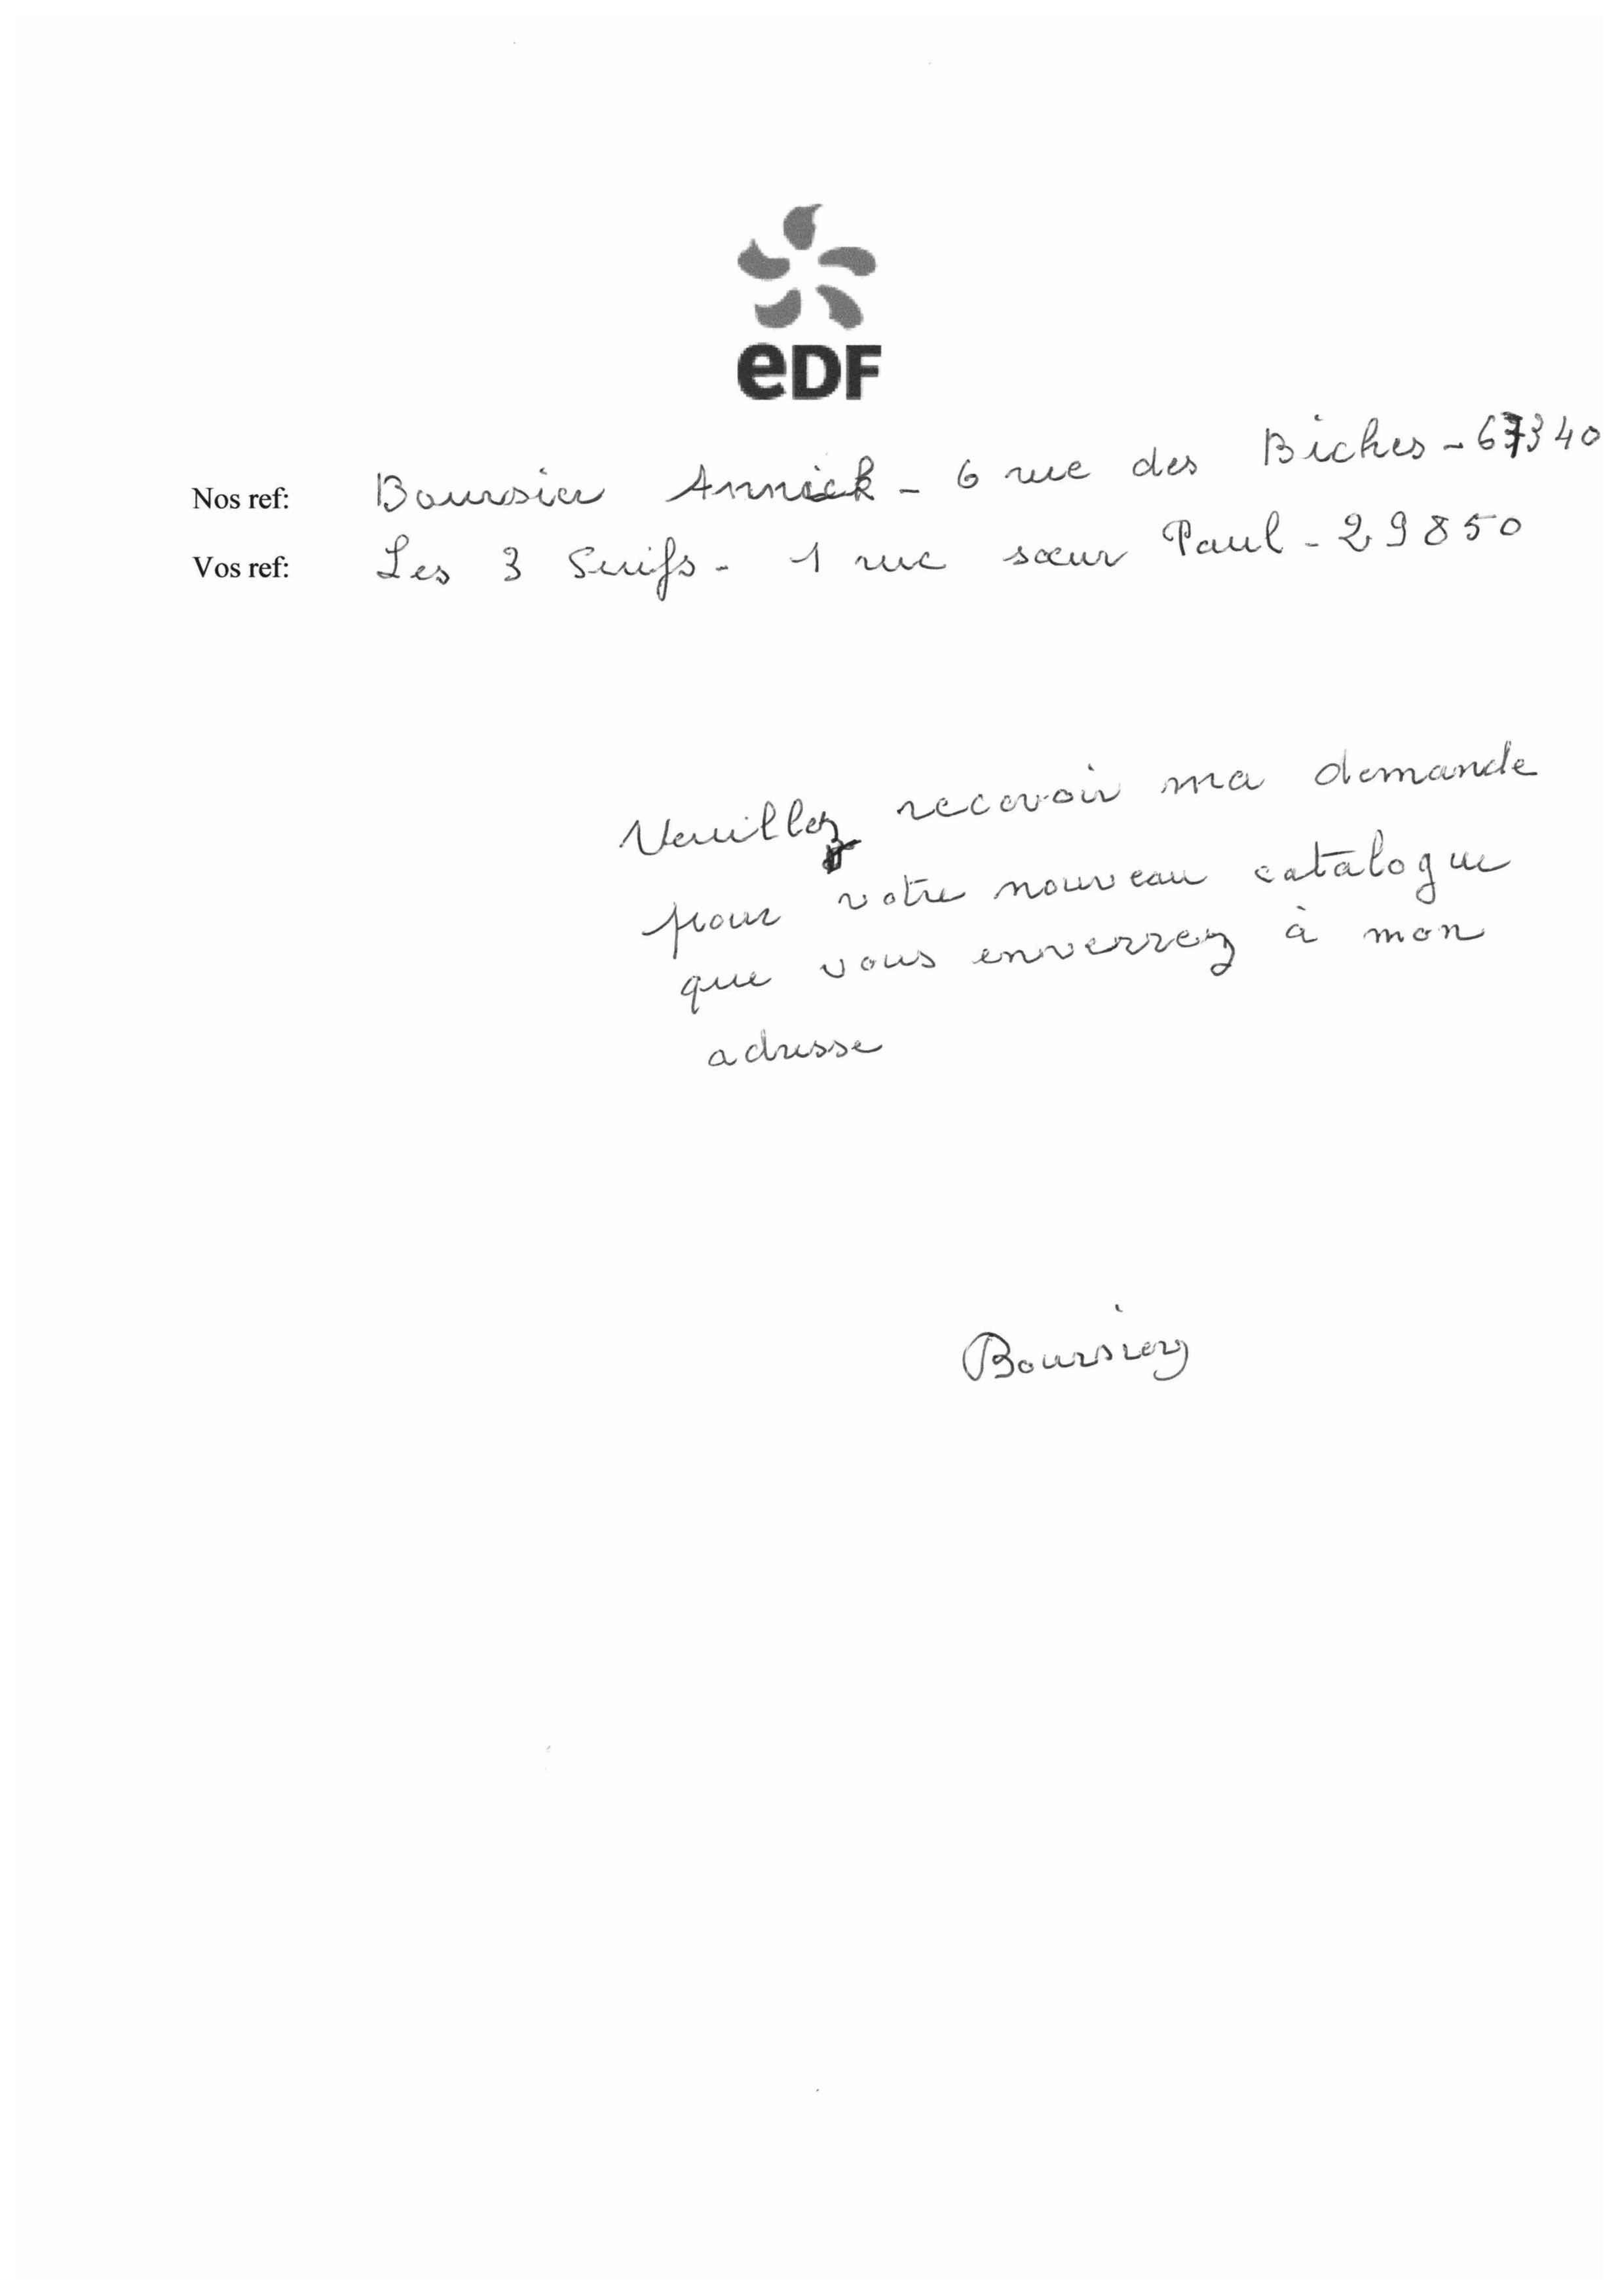 eDF
Nos ref: Boursier Annick - 6 rue des Biches - 67340
Vos ref: Les 3 Suifs - 1 rue sœur Paul - 29850
Veuillez recevoir ma demande
pour votre nouveau catalogue
que vous enverrez à mon
adresse
Boursier